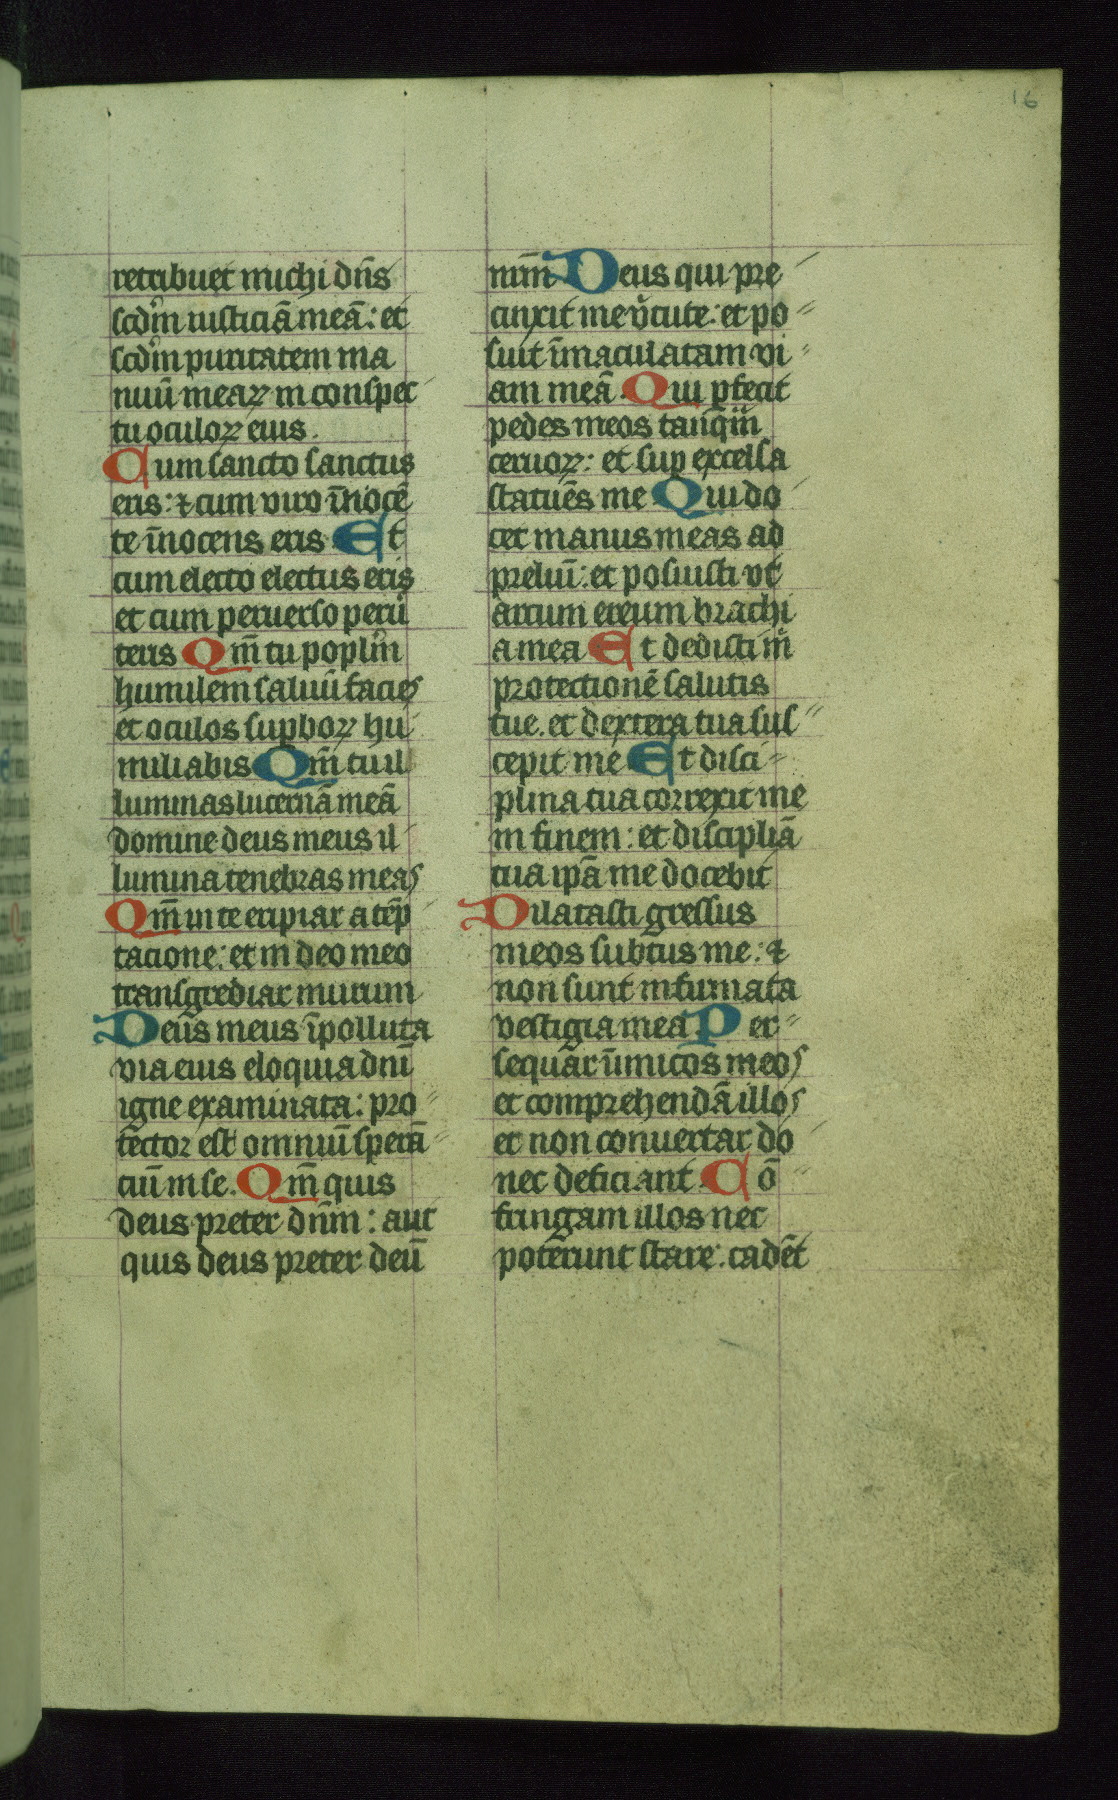 16
retribuet michi dn̄s
scd̄m iusticiā meā: et
scd̄m puritatem ma
nuū mearꝝ in conspec
tu oculorꝝ eius.
Cum sancto sanctus
eris: ⁊ cum viro īnocē
te īnocens eris Et
cum electo electus eris
et cum peruerso peru̾
teris Qm̄ tu popl̄m
humilem saluū facies
et oculos suꝑborꝝ hu
miliabis Qm̄ tu il
luminas lucernā meā
domine deus meus il
lumina tenebras meas
Qm̄ in te eripiar a tēp
tacione: et in deo meo
transgrediar murum
Deus meus īpolluta
via eius eloquia dnī
igne examinata: pro
tector est omniū sperā
ciū in se. Qm̄ quis
deus preter dn̄m: aut
quis deus preter deū
nr̄m Deus qui pre
cinxit me v̾tute: et po
suit īmaculatam vi
am meā Qui ꝑfecit
pedes meos tanq̄m
ceruorꝝ: et suꝑ excelsa
statuēs me Qui do
cet manus meas ad
preliū: et posuisti vt
arcum ereum brachi
a mea Et dedisti m̄
protectionē salutis
tue. et dextera tua sus
cepit me Et disci
plina tua correxit me
in finem: et discipliā
tua ip̄a me docebit
Dilatasti gressus
meos subtus me: ⁊
non sunt infirmata
vestigia mea Per
sequar īnimicos meos
et comprehendā illos
et non conuertar do
nec deficiant. Cō
fringam illos nec
poterunt stare: cadēt